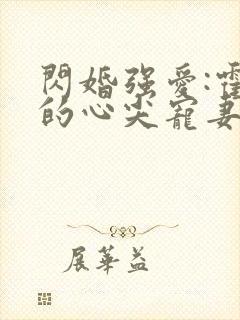 閃婚強愛:霍
的心尖寵妻
展華益